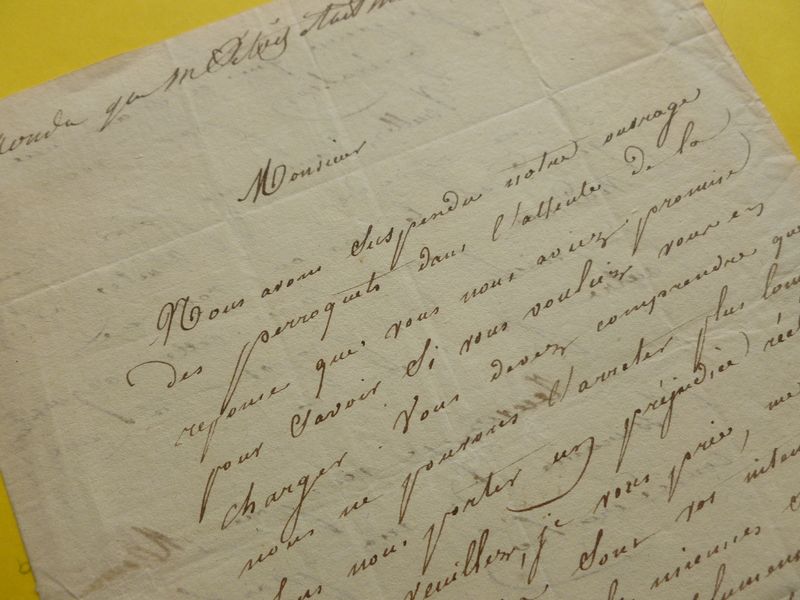 que m
Monsieur
Nous avons suspendu notre ouvrage
des perroquets dans l'attente de la
reponse que vous nous aviez promise
pour savoir si vous vouliez vous en
charger. Vous devez comprendre que
nous ne pouvons l'arreter plus
nous porter un préjudice
veuillez, je vous prie, me
sont vos
miennes